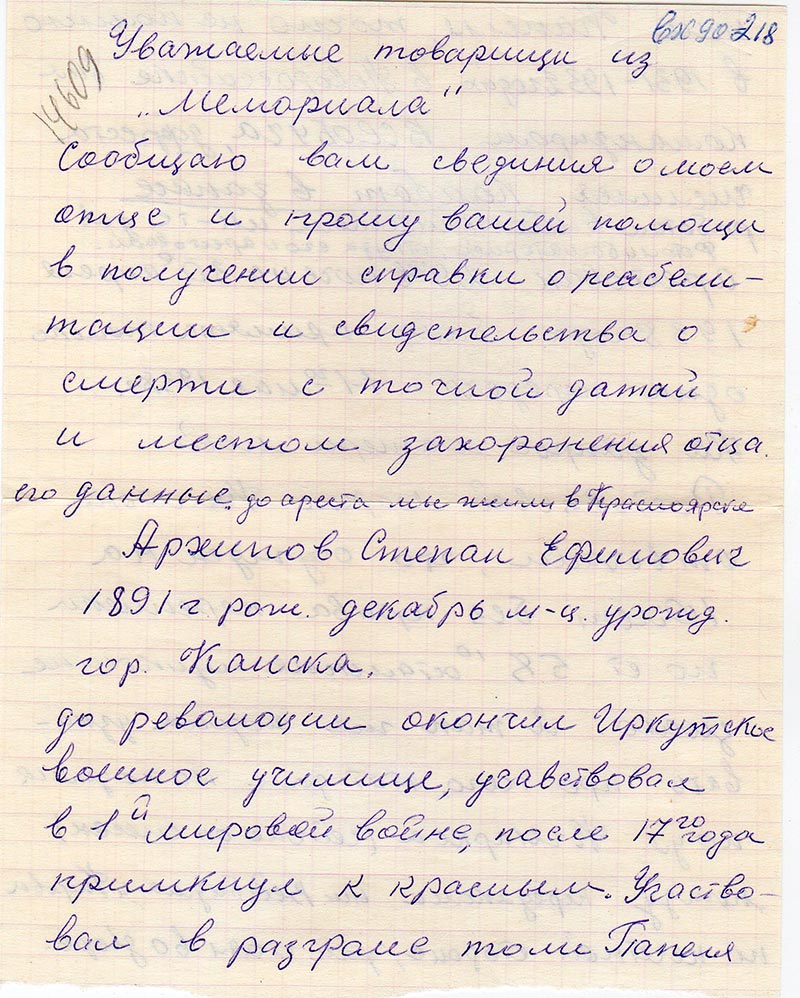 вх 90-218
14609
Уважаемые товарищи из
„Мемориала"
Сообщаю вам свединия о моем
отце и прошу вашей помощи
в получении справки о реабели-
тации и свидетельства о
смерти с точной датай
и местом захоронения отца.
его данные. до ареста мы жили в Красноярске
Архипов Степан Ефимович
1891 г. рож. декабрь м-ц. урожд.
гор. Канска.
до революции окончил Иркутское
военное училище, учавствовал
в 1й мировой войне, после 17го года
примкнул к красным. Участво-
вал в разгроме толи Папеля